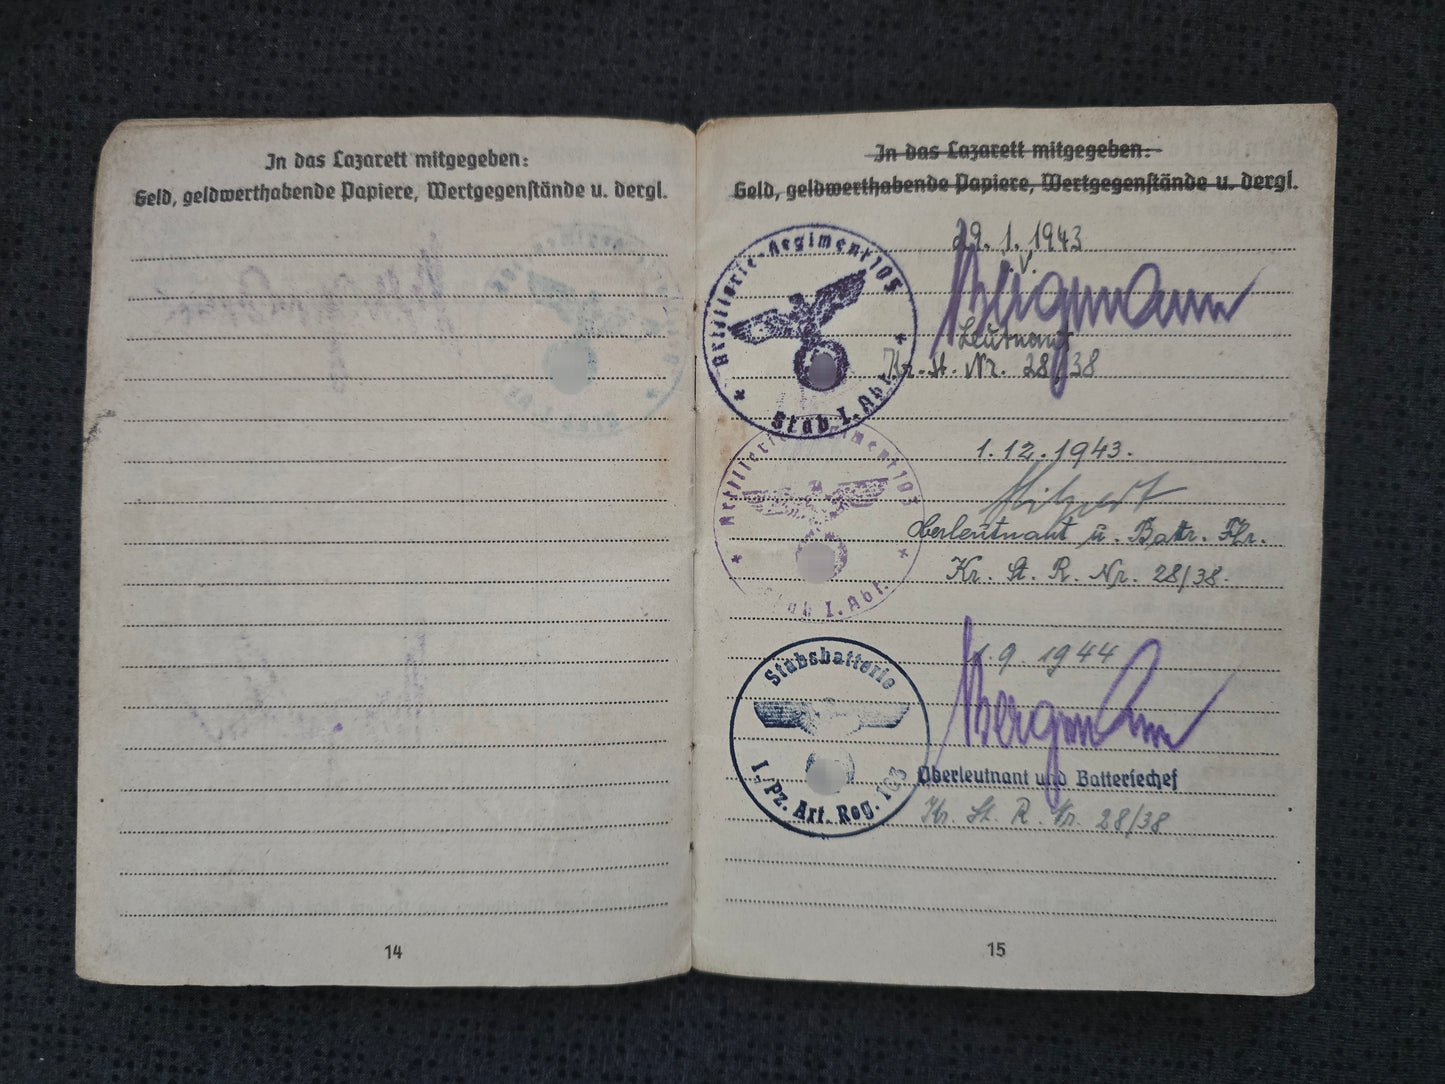 In das Lazarett mitgegeben:
Geld, geldwerthabende Papiere, Wertgegenstände u. dergl.
14
In das Lazarett mitgegeben:
Geld, geldwerthabende Papiere, Wertgegenstände u. dergl.
Artillerie-Regiment
Stab I. Abt.
29. 1. 1943
i. V.
Bergmann
Leutnant
Kr.-St. Nr. 28/38
Artillerie-Regiment
Stab I. Abt.
1. 12. 1943.
Oberleutnant u. Battr. Fhr.
Kr. St. R. Nr. 28/38.
Stabsbatterie
I. Pz. Art. Reg. 103
1 9. 1944
Bergmann
Oberleutnant und Batteriechef
Kr. St. R. Nr. 28/38
15